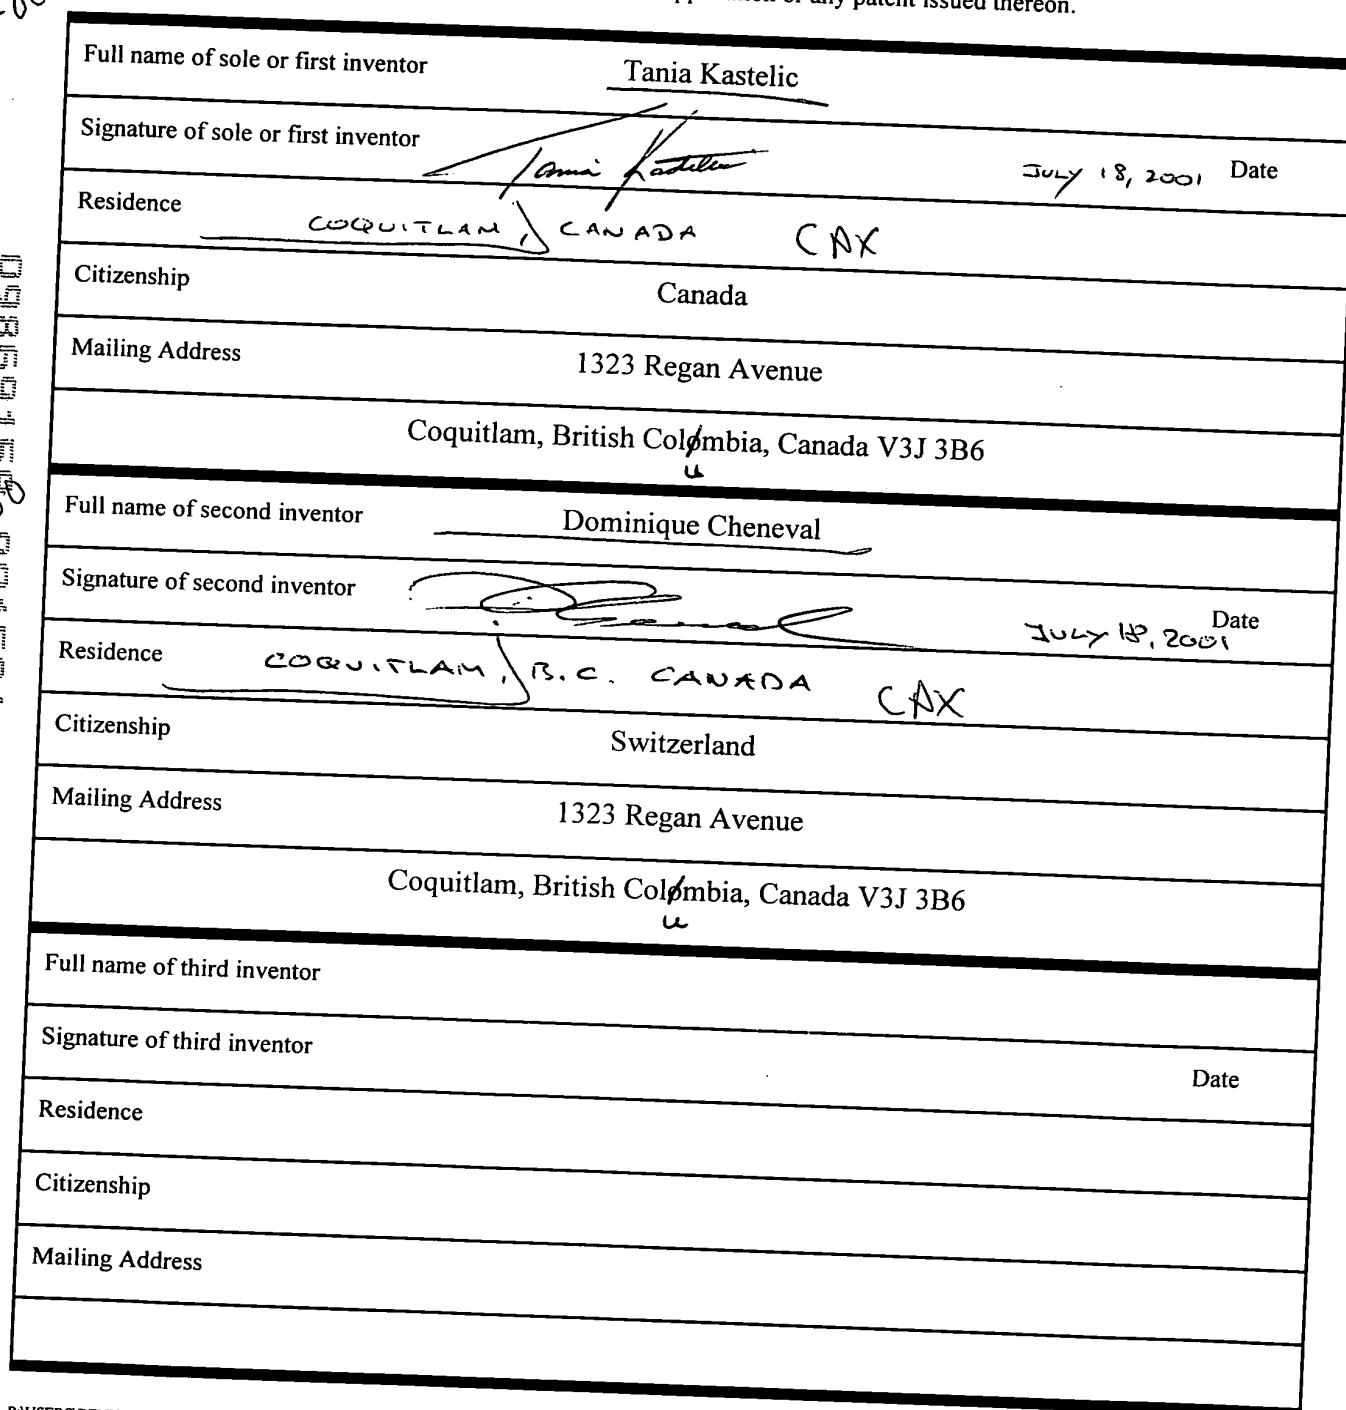 any patent issued thereon.
Full name of sole or first inventor Tania Kastelic
Signature of sole or first inventor Tania Kastelic JULY 18, 2001 Date
Residence COQUITLAM, CANADA CAX
Citizenship Canada
Mailing Address 1323 Regan Avenue
Coquitlam, British Colombia, Canada V3J 3B6
u
Full name of second inventor Dominique Cheneval
Signature of second inventor JULY 18, 2001 Date
Residence COQUITLAM, B.C. CANADA CAX
Citizenship Switzerland
Mailing Address 1323 Regan Avenue
Coquitlam, British Colombia, Canada V3J 3B6
u
Full name of third inventor
Signature of third inventor Date
Residence
Citizenship
Mailing Address